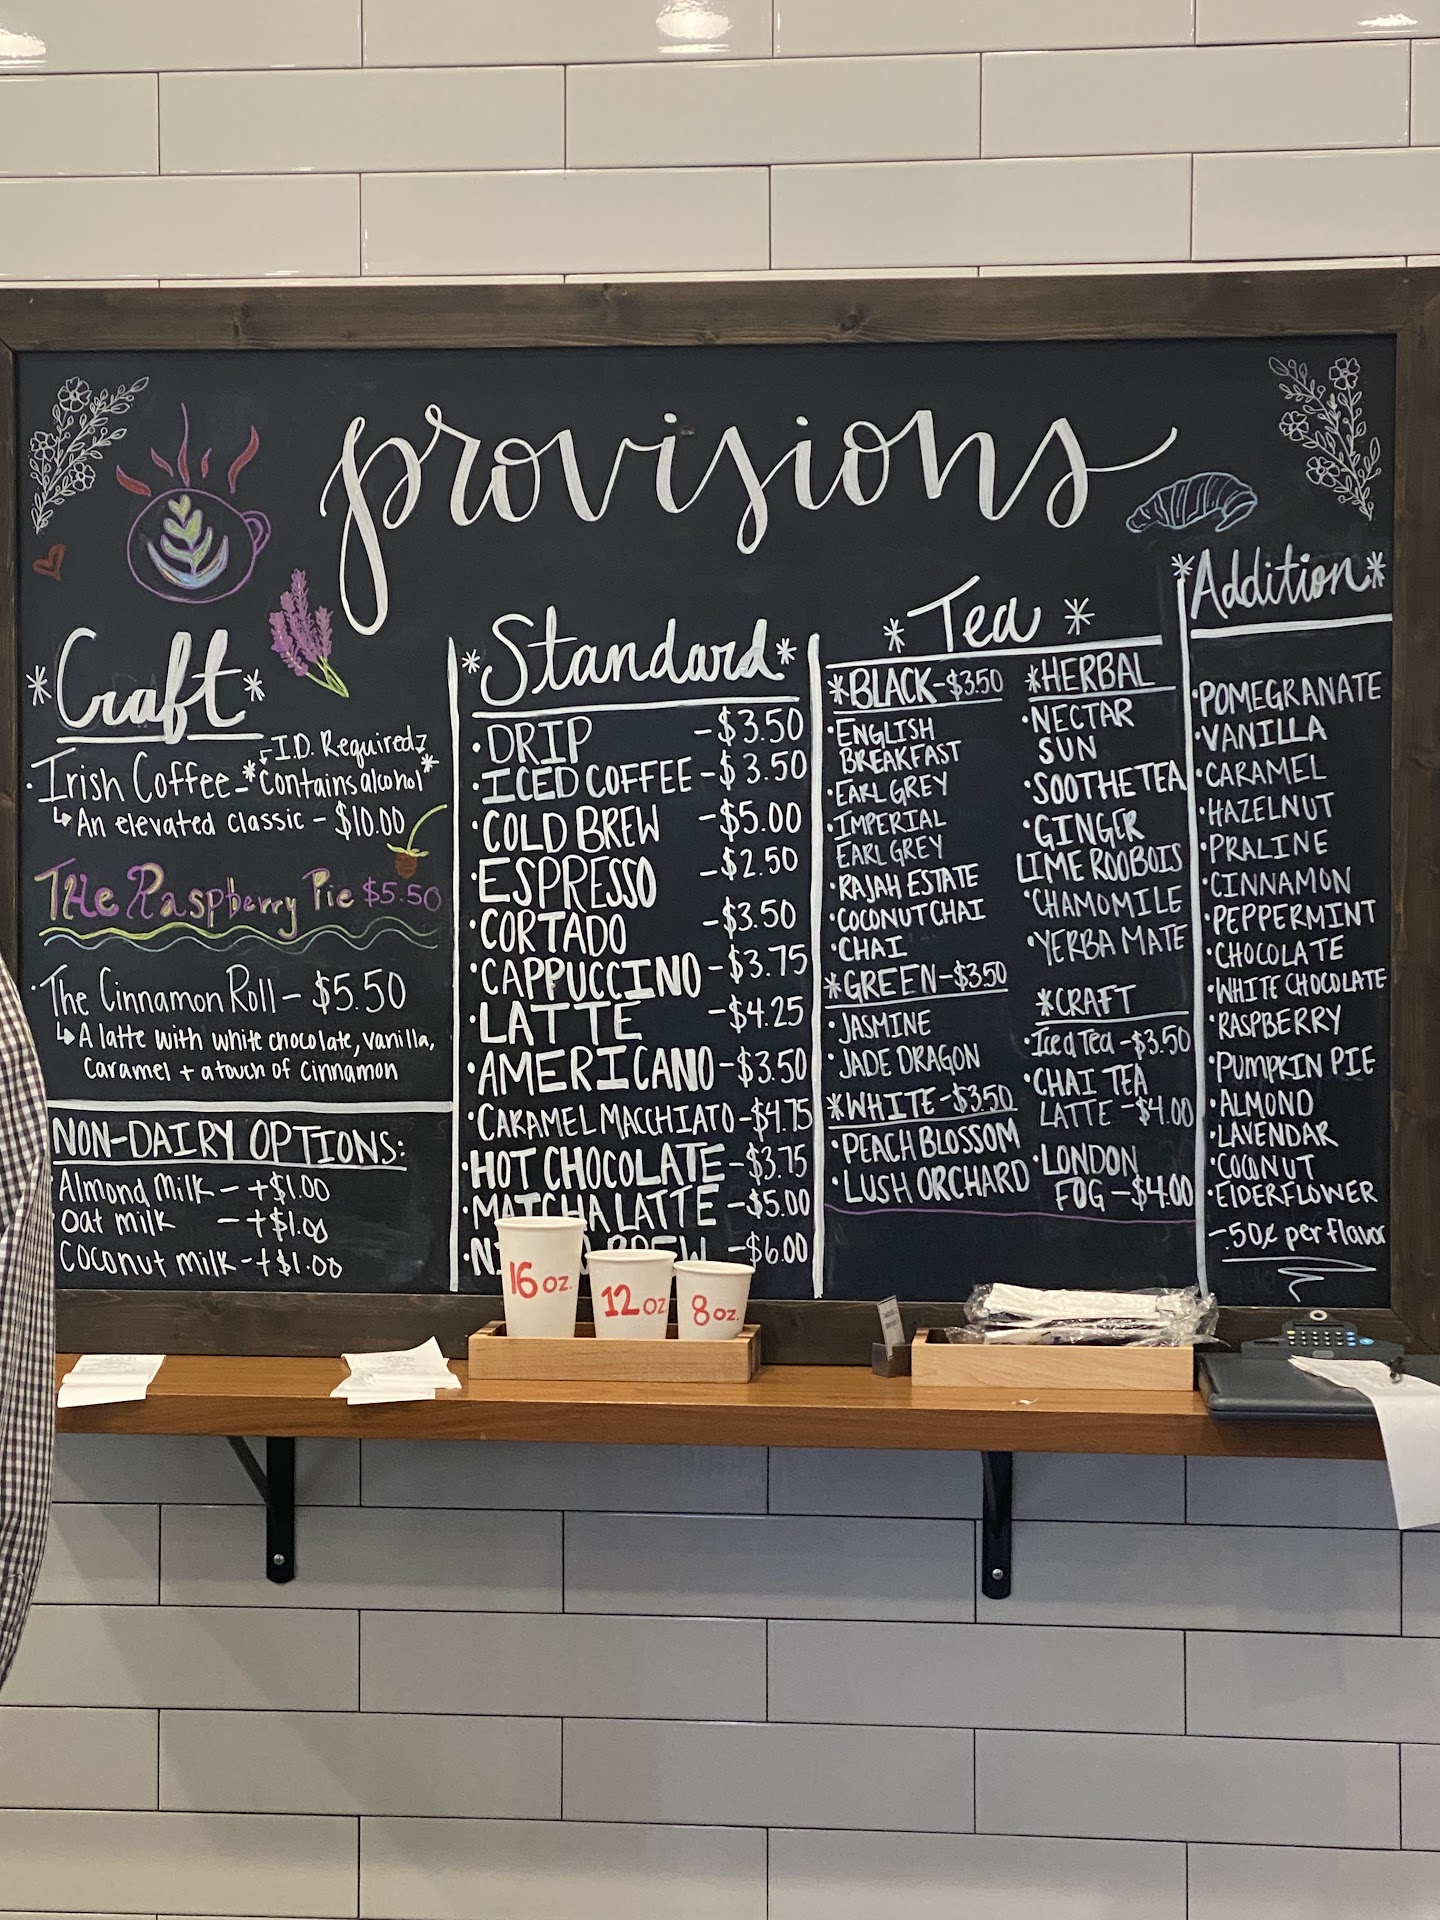 provisions
*Craft*
I.D. Required
· Irish Coffee - *Contains alcohol*
↳ An elevated classic - $10.00
THe Raspberry Pie $5.50
· The Cinnamon Roll - $5.50
↳ A latte with white chocolate, vanilla,
Caramel + a touch of cinnamon
NON-DAIRY OPTIONS:
Almond Milk - +$1.00
Oat milk - +$1.00
Coconut milk - +$1.00
*Standard*
· DRIP - $3.50
· ICED COFFEE - $3.50
· COLD BREW - $5.00
· ESPRESSO - $2.50
· CORTADO - $3.50
· CAPPUCCINO - $3.75
· LATTE - $4.25
· AMERICANO - $3.50
· CARAMEL MACCHIATO - $4.75
· HOT CHOCOLATE - $3.75
· MATCHA LATTE - $5.00
BREW - $6.00
* Tea *
*BLACK - $3.50
· ENGLISH
BREAKFAST
· EARL GREY
· IMPERIAL
EARL GREY
· RAJAH ESTATE
· COCONUT CHAI
· CHAI
*GREEN - $3.50
· JASMINE
· JADE DRAGON
*WHITE - $3.50
· PEACH BLOSSOM
· LUSH ORCHARD
*HERBAL
· NECTAR
SUN
· SOOTHE TEA
· GINGER
LIME ROOBOIS
· CHAMOMILE
· YERBA MATE
*CRAFT
· Iced Tea - $3.50
· CHAI TEA
LATTE - $4.00
· LONDON
FOG - $4.00
*Addition*
· POMEGRANATE
· VANILLA
· CARAMEL
· HAZELNUT
· PRALINE
· CINNAMON
· PEPPERMINT
· CHOCOLATE
· WHITE CHOCOLATE
· RASPBERRY
· PUMPKIN PIE
· ALMOND
· LAVENDAR
· COCONUT
· ElDERFLOWER
- .50¢ per flavor
16 oz.
12 oz
8 oz.